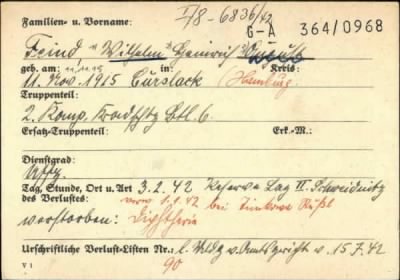 I/8-6836/42
Familien- u. Vorname: G-A 364/0968
Feind, Wilhelm Heinrich August
geb. am: in: Kreis:
11. Nov. 1915 Curslack (Hamburg)
Truppenteil:
2. Komp. Kradschtz. Btl. 6.
Ersatz-Truppenteil: Erk.-M.:
Dienstgrad:
Uffz.
Tag, Stunde, Ort u. Art 3.2.42 Reserve Laz II Schweidnitz
des Verlustes: verw. 1.1.42 bei
verstorben: Diphtherie
Urschriftliche Verlust-Listen Nr.: l. Mldg v. Amtsgericht v. 15.7.42
V 1 90